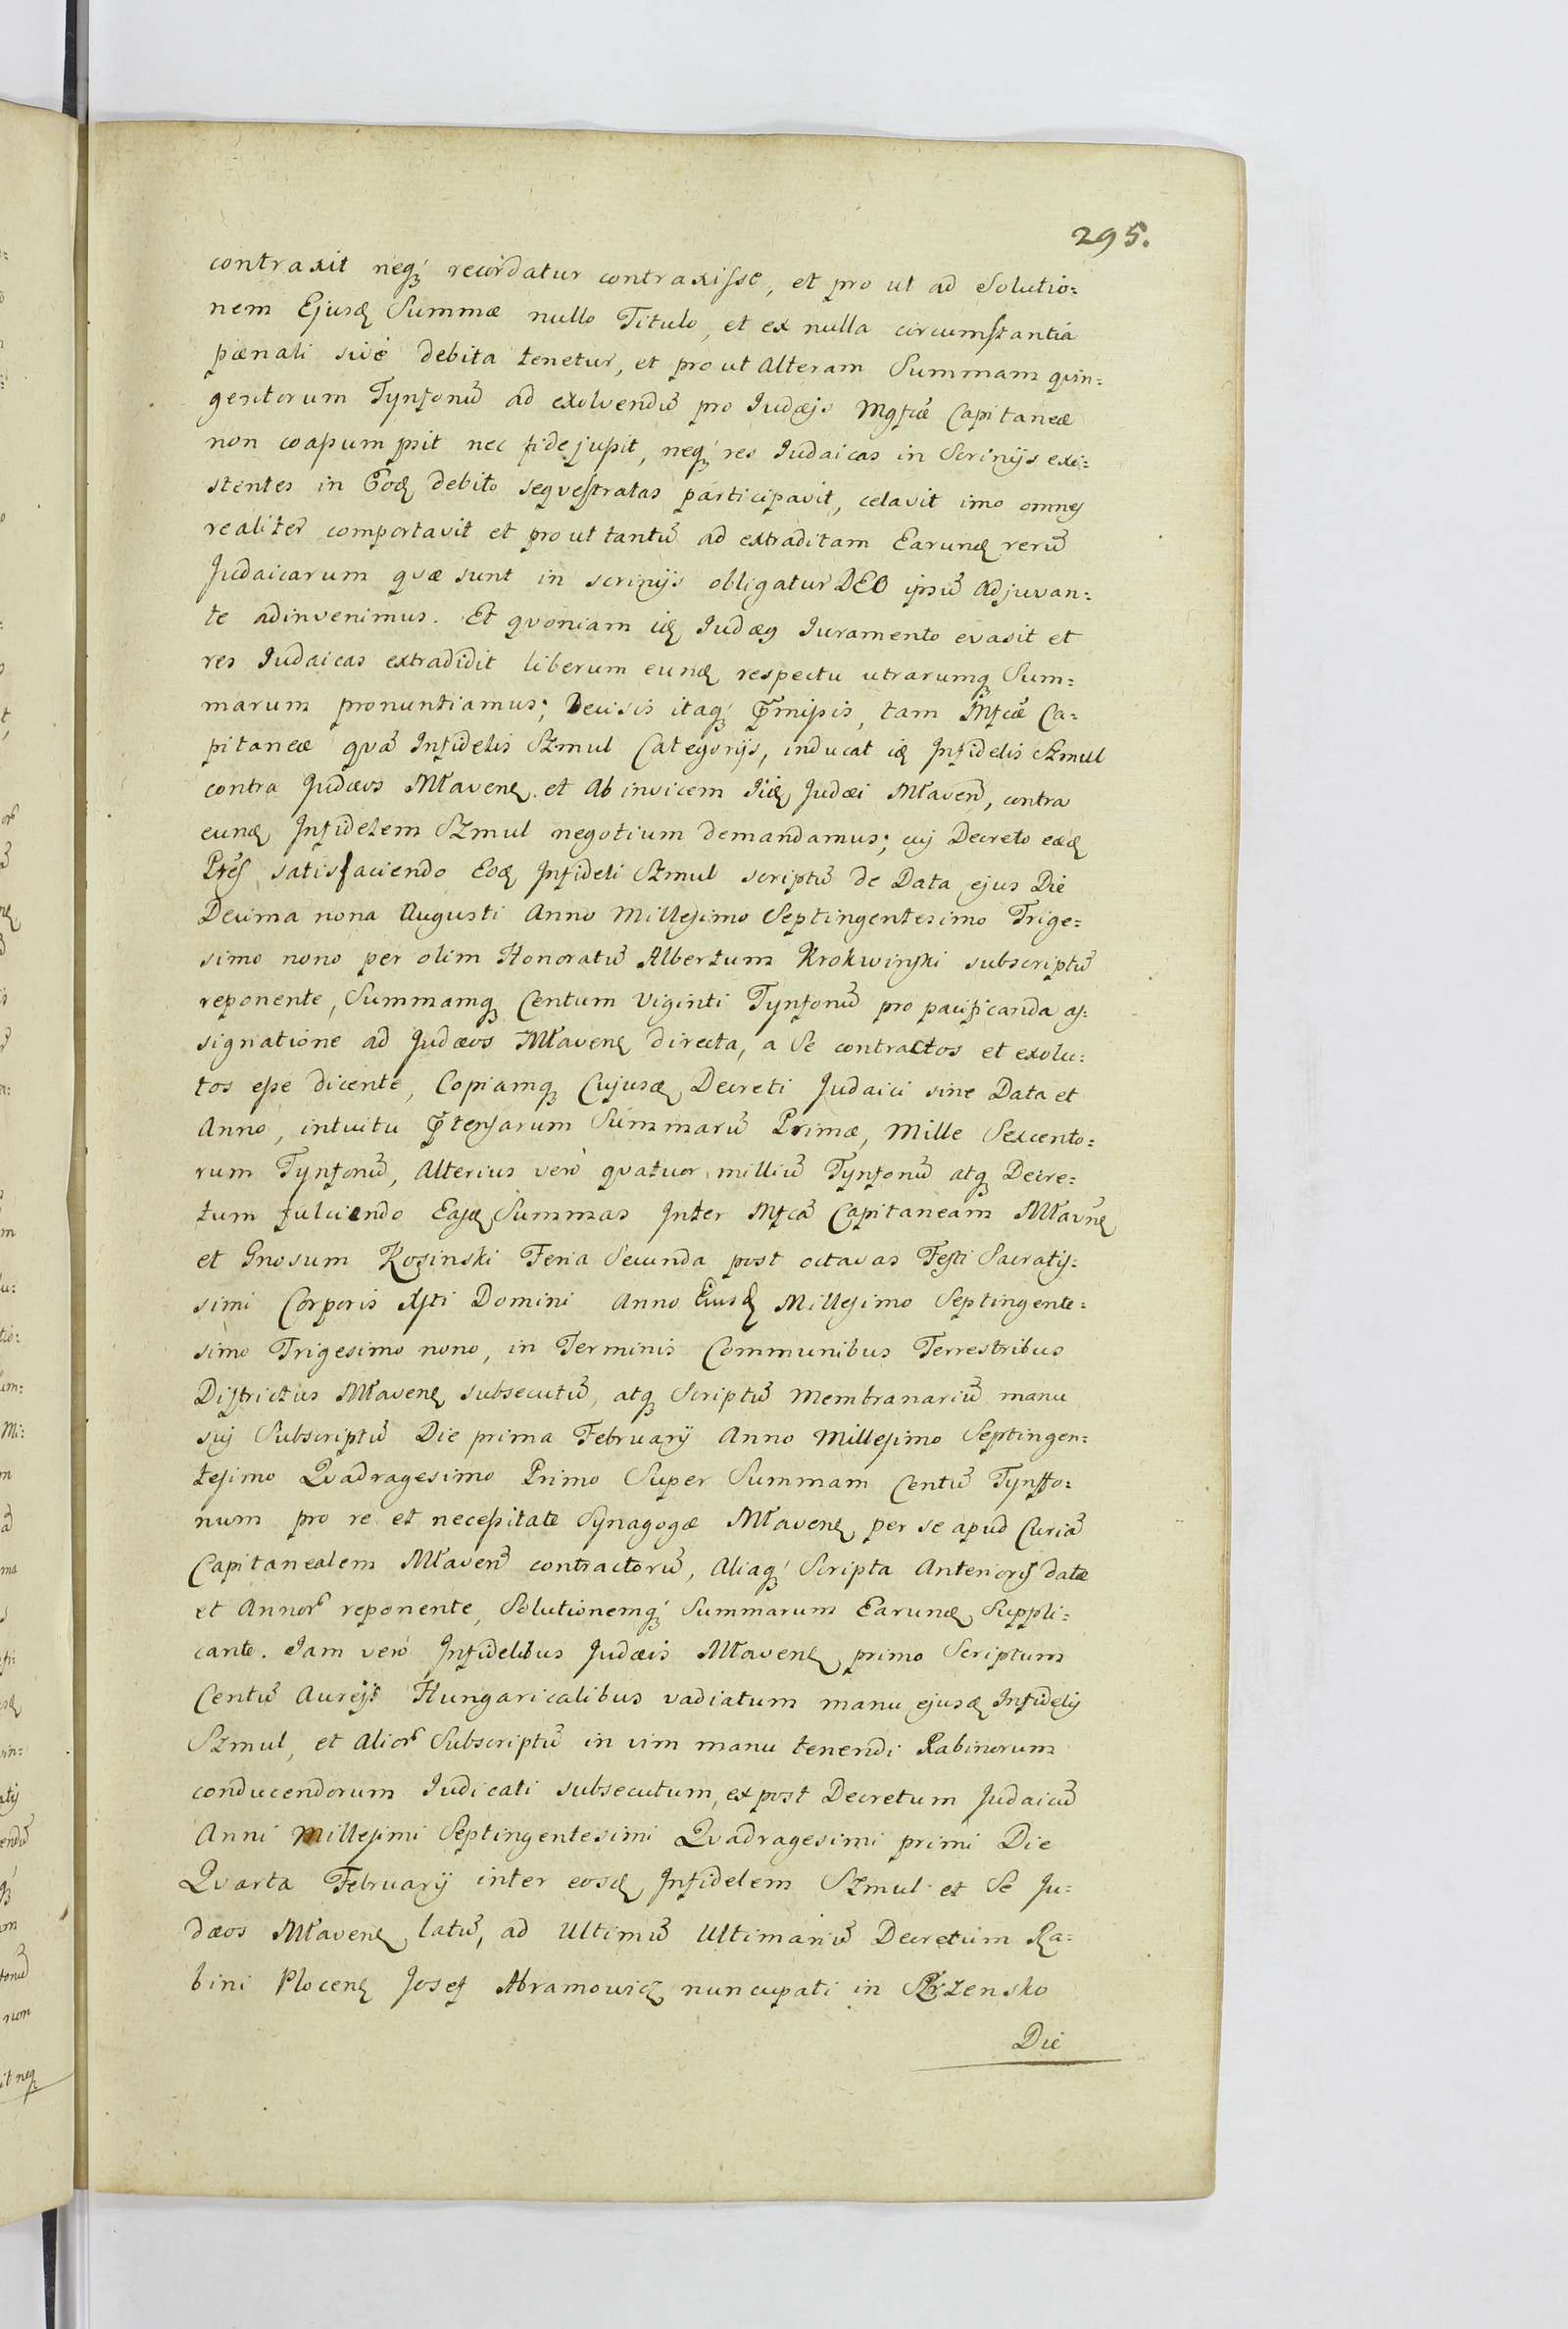 295.
contraxit neq́ recordatur contraxisse, et pro ut ad Solutio=
nem Ejusd Summæ nullo Titulo, et ex nulla circumstantia
pænali sivé debita tenetur, et pro ut Alteram Summam qvin=
gentorum Tynfonū ad exolvendū pro Judæjs Mgfcæ Capitaneæ
non coassumpsit nec fidejussit, neq́ res Judaicas in Scrinijs exi=
stentes in Eod debito seqvestratas participavit, celavit imo omnes
realiter comportavit et pro ut tantū ad extraditam Earund rerū
Judaicarum qvæ sunt in scrinijs obligatur DEO ipsū Adjuvan=
te adinvenimus. Et qvoniam id Judæg Juramento evasit et
res Judaicas extradidit liberum eund respectu utrarumq Sum=
marum pronuntiamus; Decisis itaq́ Præmissis, tam Mfcæ Ca=
pitaneæ qvā Infidelis Szmul Categorijs, inducat id Infidelis Szmul
contra Judæos Mławens. et Ab invicem Iid Judæi Mławen, contra
eund Infidelem Szmul negotium demandamus; cuj Decreto eæd
Ptes satisfaciendo Eod Infideli Szmul scriptū de Data ejus Die
Decima nona Augusti Anno Millesimo Septingentesimo Trige=
simo nono per olim Honoratū Albertum Krokwinski subscriptū
reponente, Summamq Centum Viginti Tynfonū pro pacificanda as=
signatione ad Judæos Mławens directa, a Se contractos et exolu=
tos esse dicente, Copiamq Cujusd Decreti Judaici sine Data et
Anno, intuitu Prætensarum Summarū Primæ, Mille Sexcento=
rum Tynfonū, Alterius verò qvatuor milliū Tynfonū atq Decre=
tum fulciendo Easd Summas Inter Mfcā Capitaneam Mławens
et Gnosum Kosinski Feria Secunda post octavas Festi Sacratis=
simi Corporis Xsti Domini Anno Eiusd Millesimo Septingente=
simo Trigesimo nono, in Terminis Communibus Terrestribus
Districtus Mławens subsecutū, atq Scriptū Membranariū manu
suj Subscriptū Die prima February Anno Millesimo Septingen=
tesimo Qvadragesimo Primo Super Summam Centū Tynffo=
num pro re et necessitate Synagogæ Mławens per se apud Curiā
Capitanealem Mławen contractorū, Aliaq́ Scripta Anterioris datæ
et Annor reponente, Solutionemq́ Summarum Earund Suppli=
cante. Iam verò Infidelibus Judæis Mławens primo Scriptum
Centū Aurejs Hungaricalibus vadiatum manu ejusd Infidelis
Szmul, et Alior Subscriptū in vim manu tenendi Rabinorum
conducendorum Judicati subsecutum, ex post Decretum Judaicū
Anni Millesimi Septingentesimi Qvadragesimi primi Die
Qvarta February inter eosd Infidelem Szmul et Se Ju=
dæos Mławens latū, ad Ultimū Ultimariū Decretum Ra=
bini Plocens Josef Abramowicz nuncupati in
Die